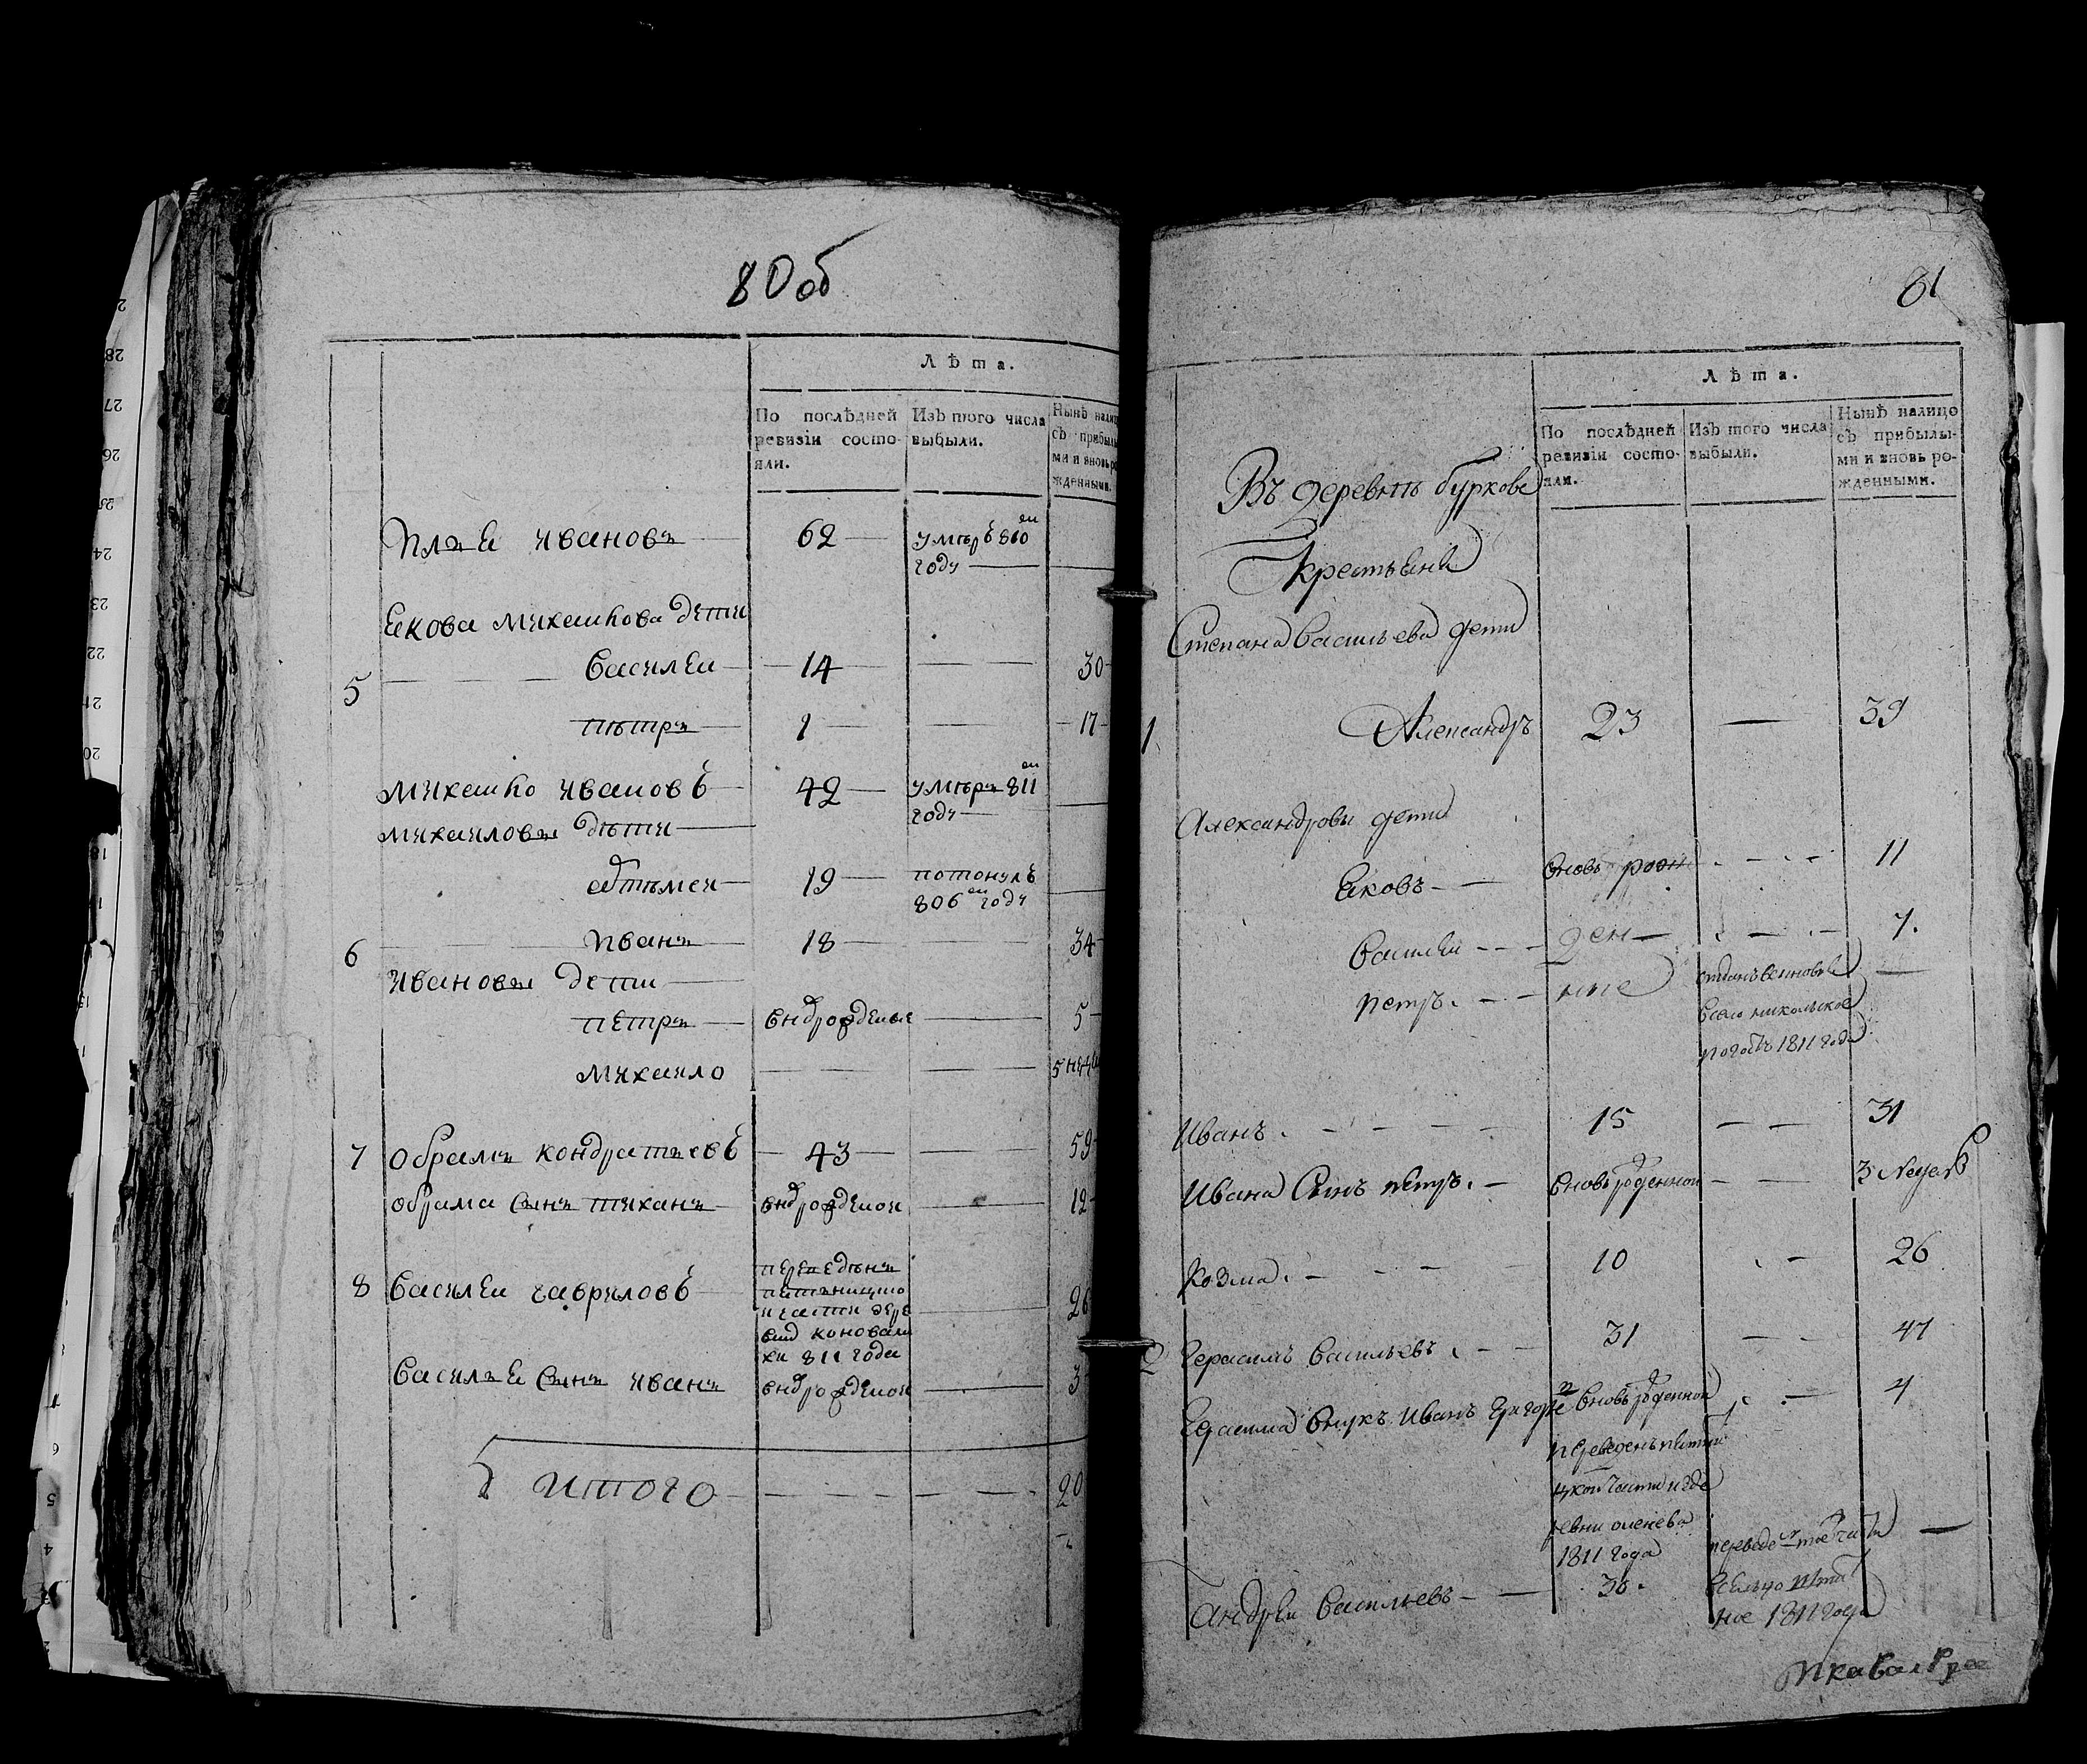 80 об
Лѣта.
По послѣдней ревизіи состояли.
Изъ того числа выбыли.
Нынѣ налицо съ прибылыми и вновь рожденными.
Илья Ивановъ 62 умѣръ 810 ем
году
Якова Михайлова дѣти
5 Василеи 14 30
пѣтръ 1 17
Михаило Ивановъ 42 умѣръ 811 ем
году
Михаиловы дѣти
19 потонулъ
806 ем году
6 Иванъ 18 34
Ивановы дети
пѣтръ внорожденые 5
Михаило 5 недѣл
7 Обрамъ Кондратьевъ 43 59
Обрама сынъ Тиханъ внорожденои 12
8 Василеи Гавриловъ 26
811 года
Василья сынъ Иванъ внорожденои 3
Итого 20
81
Лѣта.
По послѣдней ревизіи состояли.
Изъ того числа выбыли.
Нынѣ налицо съ прибылыми и вновь рожденными.
Въ деревнѣ буркове
Крестьяня
Степана Васильева дети
1 Александръ 23 39
Александровы дети
Яковъ вновь рож 11
Василеи ден 7.
петръ ные
всело никольское
погостъ 1811 года
Иванъ 15 31
Ивана Сынъ петръ вновьрожденнои 3 недель
Козма 10 26
2 Герасимъ Васильевъ 31 47
Герасима внукъ Иванъ Григорье вновьрожденнои 4
переведенъ
цкои части изде
ревни оленева
1811 года
Андреи Васильевъ 30
переведе
ное 1811 года